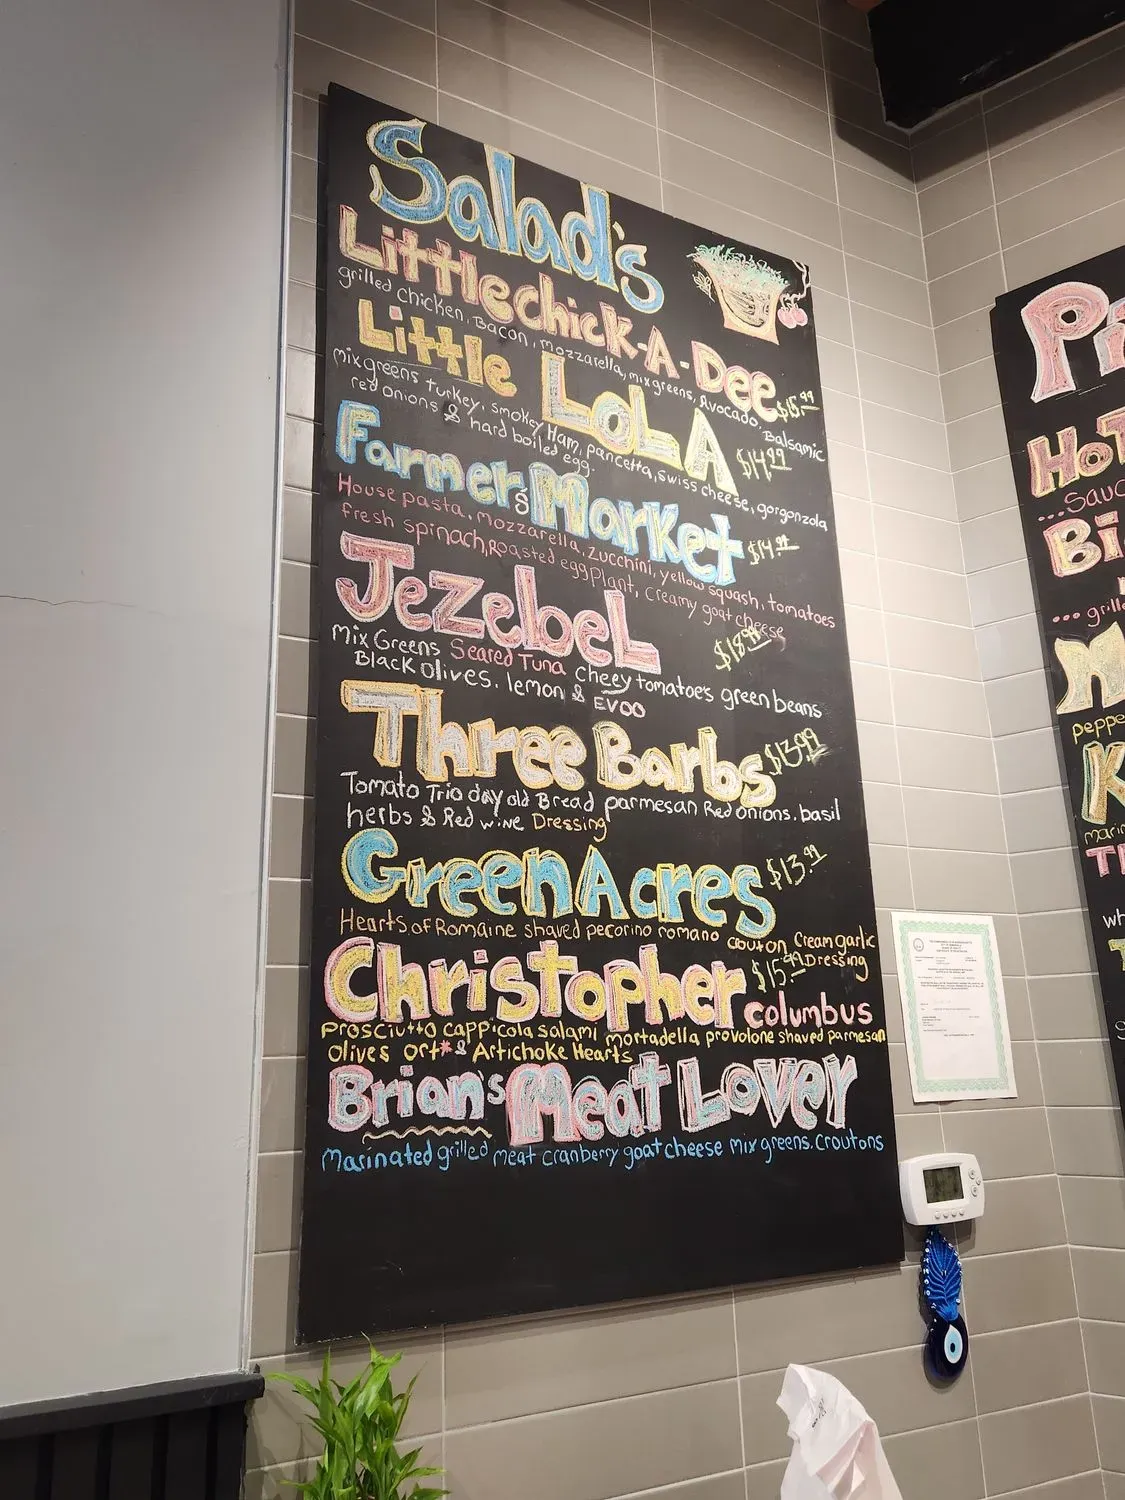 Salad's
Little chick-A-Dee $15.99
grilled chicken, Bacon, mozzarella, mixgreens, Avocado, Balsamic
Little LoLA $14.99
mixgreens turkey, smokey Ham, pancetta, swiss cheese, gorgonzola
red onions & hard boiled egg.
Farmer's Market $14.99
House pasta, mozzarella, zucchini, yellow squash, tomatoes
fresh spinach, Roasted eggplant, creamy goat cheese
Jezebel $18.99
Mix Greens Seared Tuna cheey tomatoe's green beans
Black olives. lemon & EVOO
Three Barbs $13.99
Tomato Trio day old Bread parmesan Red onions. basil
herbs & Red wine Dressing
Green Acres $13.99
Hearts of Romaine shaved pecorino romano crouton Cream garlic
Dressing
Christopher $15.99
columbus
prosciutto cappicola salami mortadella provolone shaved parmesan
olives ort* & Artichoke Hearts
Brian's Meat Lover
Marinated grilled meat cranberry goat cheese mix greens. croutons
Ho
...Sauc
Bi
... grille
peppe
K
marin
wh